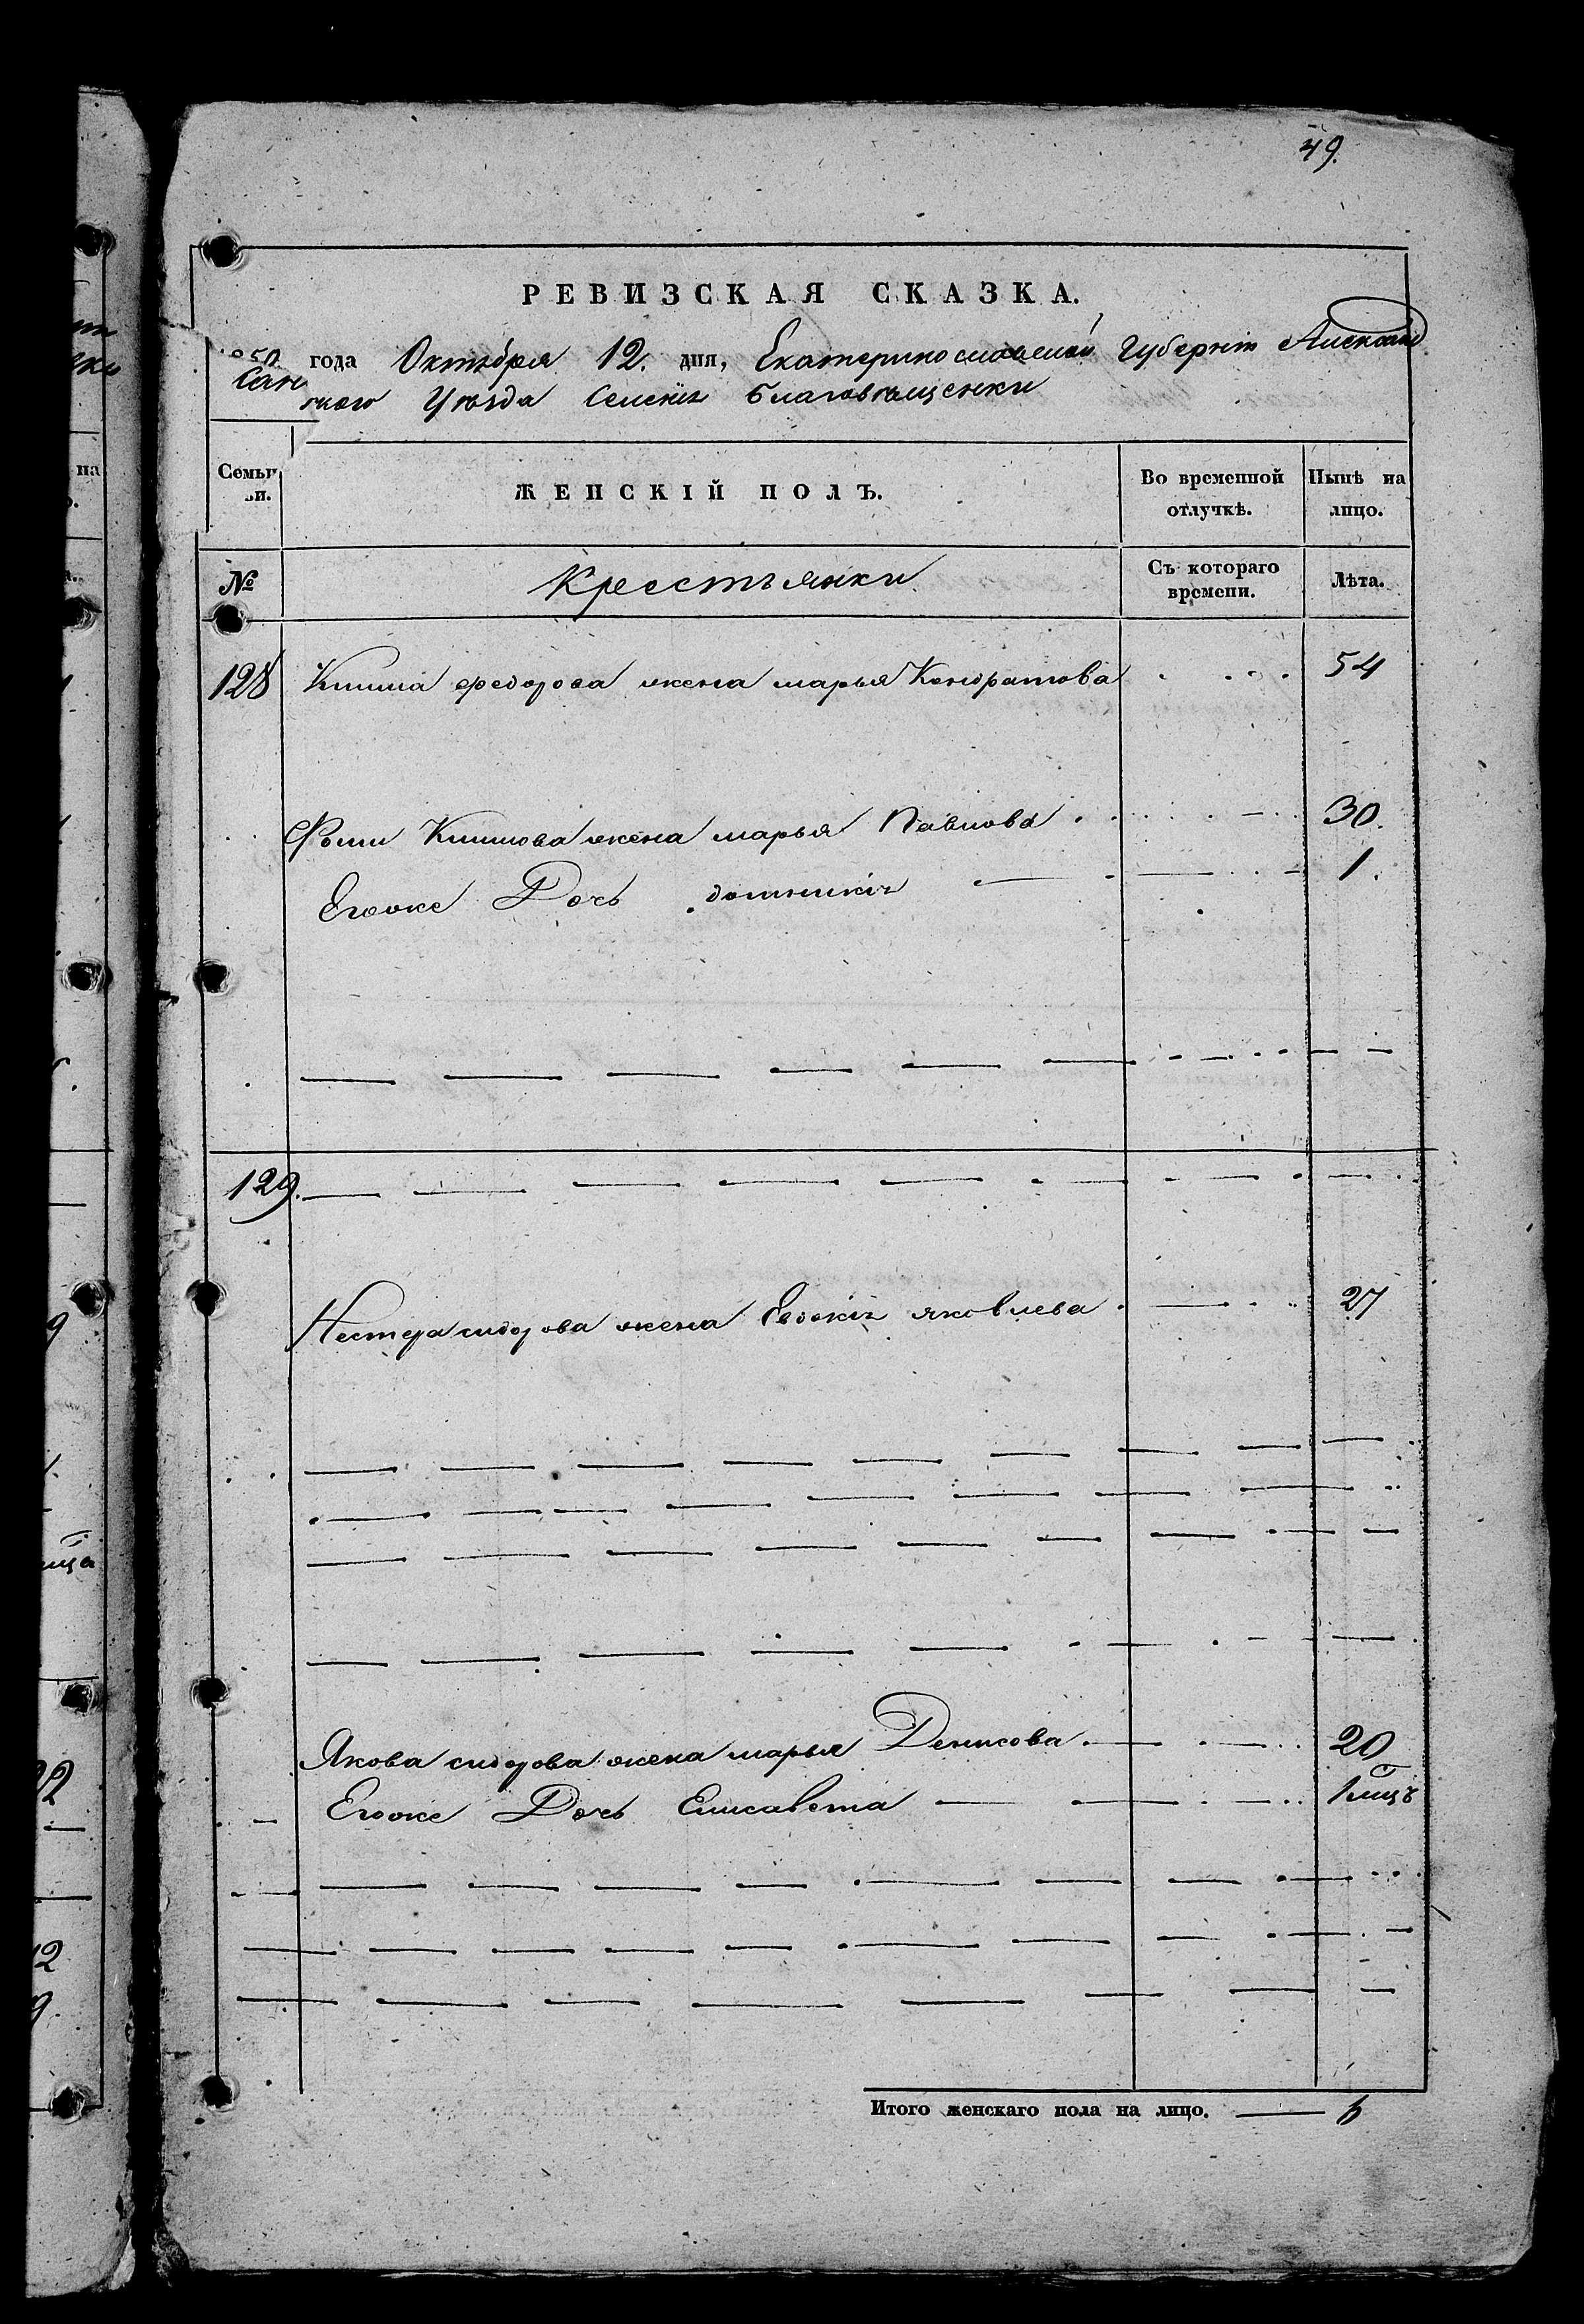 49.
РЕВИЗСКАЯ СКАЗКА.
1850 года Октября 12. дня, Екатеринославской Губерніи Александ
ского Уѣзда Селенія Благовѣщенки
Семьи
ЖЕНСКІЙ ПОЛЪ.
Во временной отлучкѣ.
Нынѣ на лицо.
№
Крестьянки.
Съ котораго времени.
Лѣта.
128 Клима федорова жена марья Кондратова 54
Климова жена марья Павлова 30.
Егоже Дочь 1.
129.
Нестера сидорова жена Евдокія яковлева 27
Якова сидорова жена марья Денисова 20
Егоже Дочь Елисавета 1 мцъ
Итого женскаго пола на лицо.
на
9
12
9.